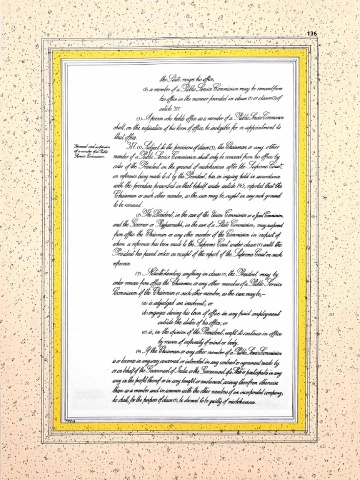 136
the State, resign his office;
(b) a member of a Public Service Commission may be removed from
his office in the manner provided in clause (1) or clause (3) of
article 317.
(3) A person who holds office as a member of a Public Service Commission
shall, on the expiration of his term of office, be ineligible for re-appointment to
that office.
Removal and suspension
of a member of a Public
Service Commission.
317. (1) Subject to the provisions of clause (3), the Chairman or any other
member of a Public Service Commission shall only be removed from his office by
order of the President on the ground of misbehaviour after the Supreme Court,
on reference being made to it by the President, has, on inquiry held in accordance
with the procedure prescribed in that behalf under article 145, reported that the
Chairman or such other member, as the case may be, ought on any such ground
to be removed.
(2) The President, in the case of the Union Commission or a Joint Commission,
and the Governor or Rajpramukh, in the case of a State Commission, may suspend
from office the Chairman or any other member of the Commission in respect of
whom a reference has been made to the Supreme Court under clause (1) until the
President has passed orders on receipt of the report of the Supreme Court on such
reference.
(3) Notwithstanding anything in clause (1), the President may by
order remove from office the Chairman or any other member of a Public Service
Commission if the Chairman or such other member, as the case may be,—
(a) is adjudged an insolvent; or
(b) engages during his term of office in any paid employment
outside the duties of his office; or
(c) is, in the opinion of the President, unfit to continue in office
by reason of infirmity of mind or body.
(4) If the Chairman or any other member of a Public Service Commission
is or becomes in any way concerned or interested in any contract or agreement made by
or on behalf of the Government of India or the Government of a State or participates in any
way in the profit thereof or in any benefit or emolument arising therefrom otherwise
than as a member and in common with the other members of an incorporated company,
he shall, for the purposes of clause (1), be deemed to be guilty of misbehaviour.